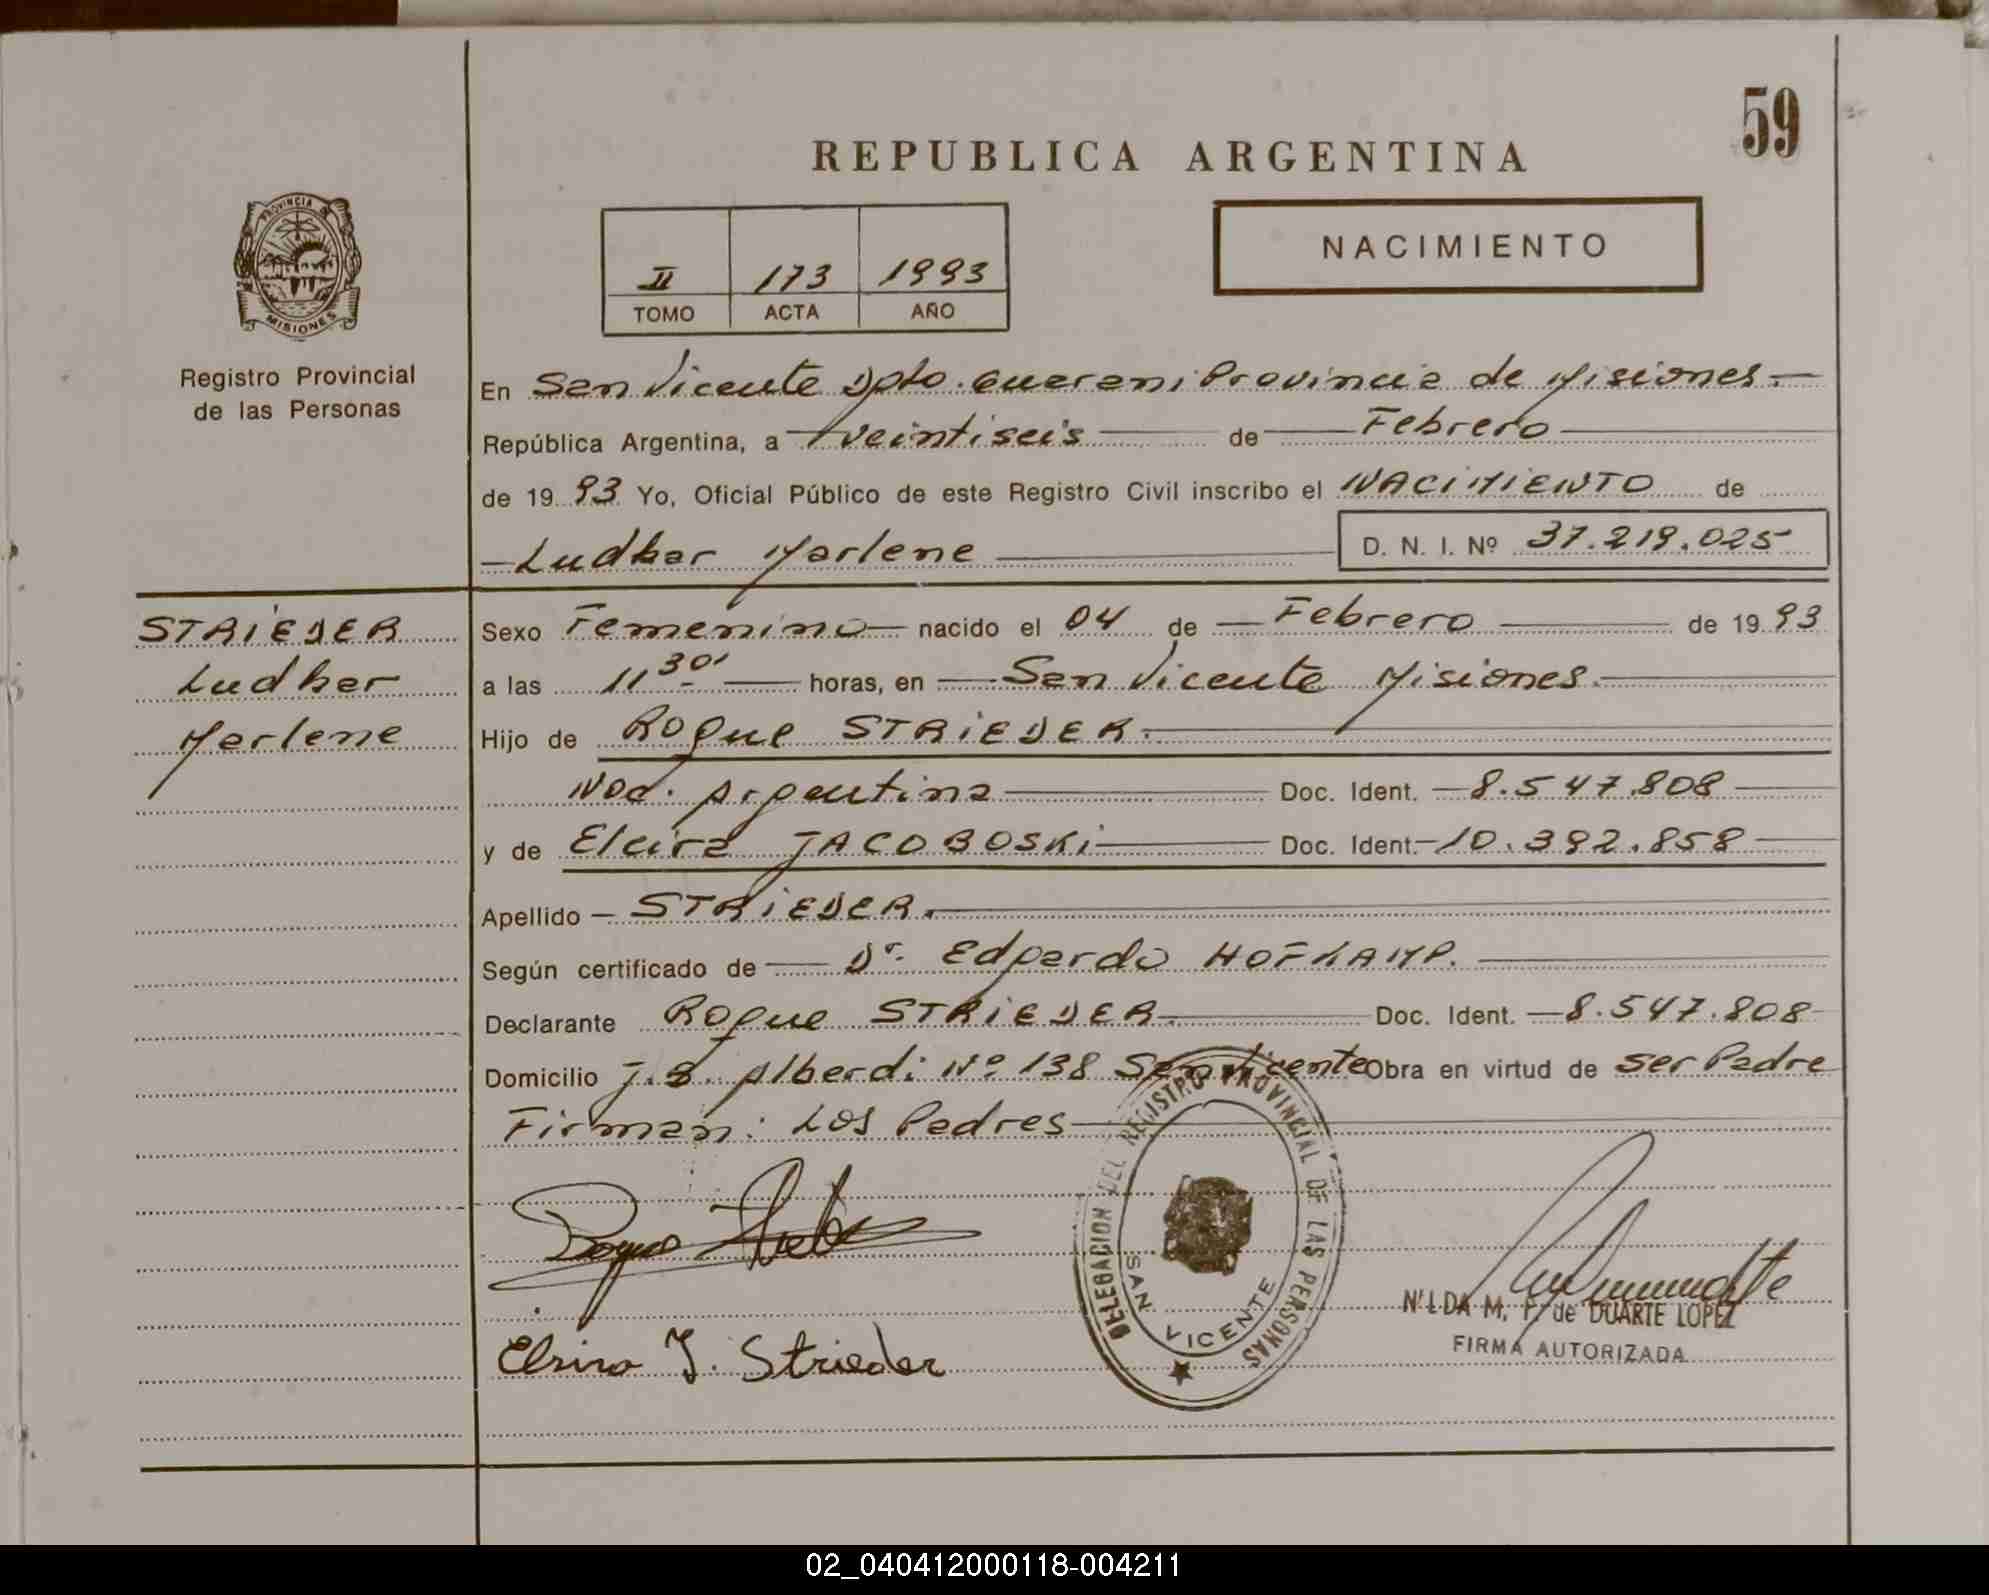 59
REPUBLICA ARGENTINA
NACIMIENTO
II 173 1993
TOMO ACTA AÑO
PROVINCIA DE
MISIONES
Registro Provincial
de las Personas
En San Vicente Dpto. Guarani Provincia de Misiones.-
República Argentina, a veintiseis de Febrero
de 1993 Yo, Oficial Público de este Registro Civil inscribo el NACIMIENTO de
Ludker Marlene D. N. I. Nº 37.219.025
STRIEDER
Ludker
Marlene
Sexo Femenino nacido el 04 de Febrero de 1993
a las 11 30' horas, en San Vicente Misiones.
Hijo de Roque STRIEDER.
Nac. Argentina Doc. Ident. 8.547.808
y de Elcira JACOBOSKI Doc. Ident. 10.392.858
Apellido STRIEDER.
Según certificado de Dr. Edgardo HOFKAMP.
Declarante Roque STRIEDER. Doc. Ident. 8.547.808
Domicilio J.B. Alberdi Nº 138 San Vicente Obra en virtud de ser Padre
Firman: Los Padres
DELEGACION DEL REGISTRO PROVINCIAL DE LAS PERSONAS
SAN VICENTE
Elsira J. Strieder
NILDA M. P. de DUARTE LOPEZ
FIRMA AUTORIZADA
02_040412000118-004211